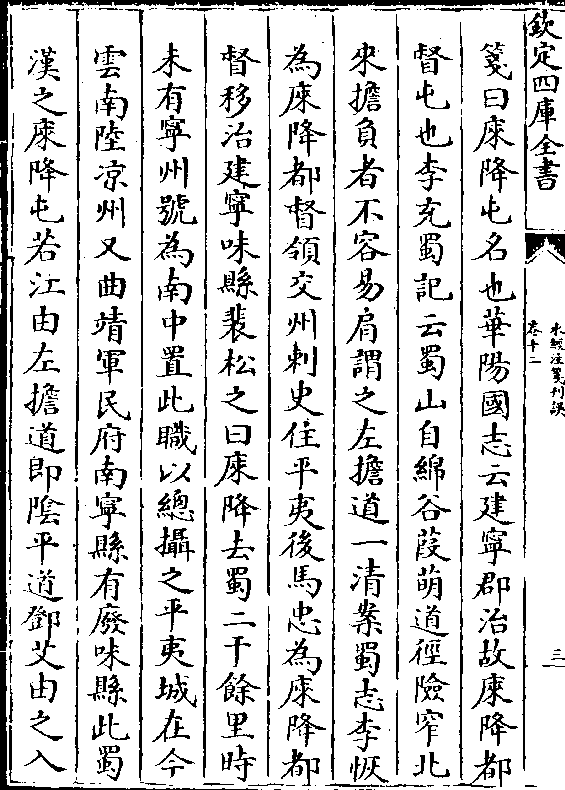 欽定四庫全書
水經注箋刊誤
卷十二
三
箋曰庲降屯名也華陽國志云建寧郡治故庲降都
督屯也李充蜀記云蜀山自綿谷葭萌道徑險窄北
來擔負者不容易肩謂之左擔道一清案蜀志李恢
為庲降都督領交州刺史住平夷後馬忠為庲降都
督移治建寧味縣裴松之曰庲降去蜀二千餘里時
未有寧州號為南中置此職以總攝之平夷城在今
雲南陸凉州又曲靖軍民府南寧縣有廢味縣此蜀
漢之庲降屯若江由左擔道即陰平道鄧艾由之入